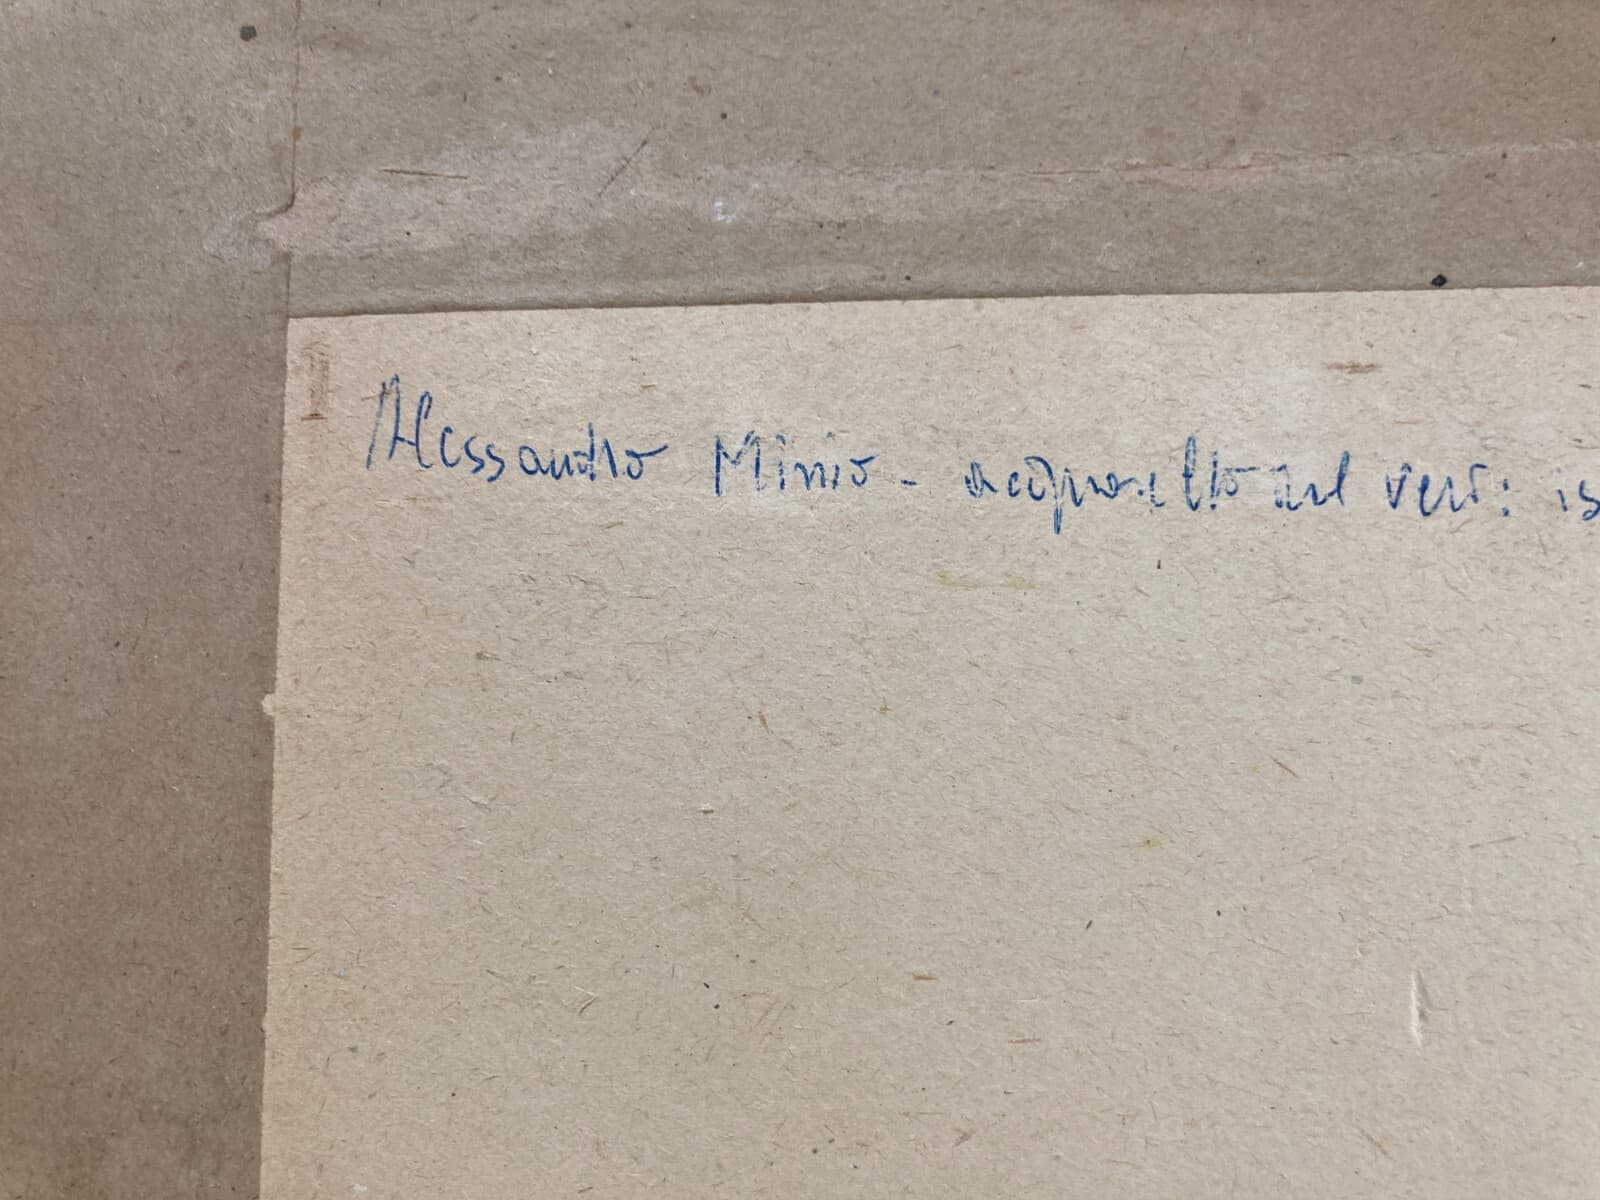 Alessandro Minio - acquerello dal vero: is